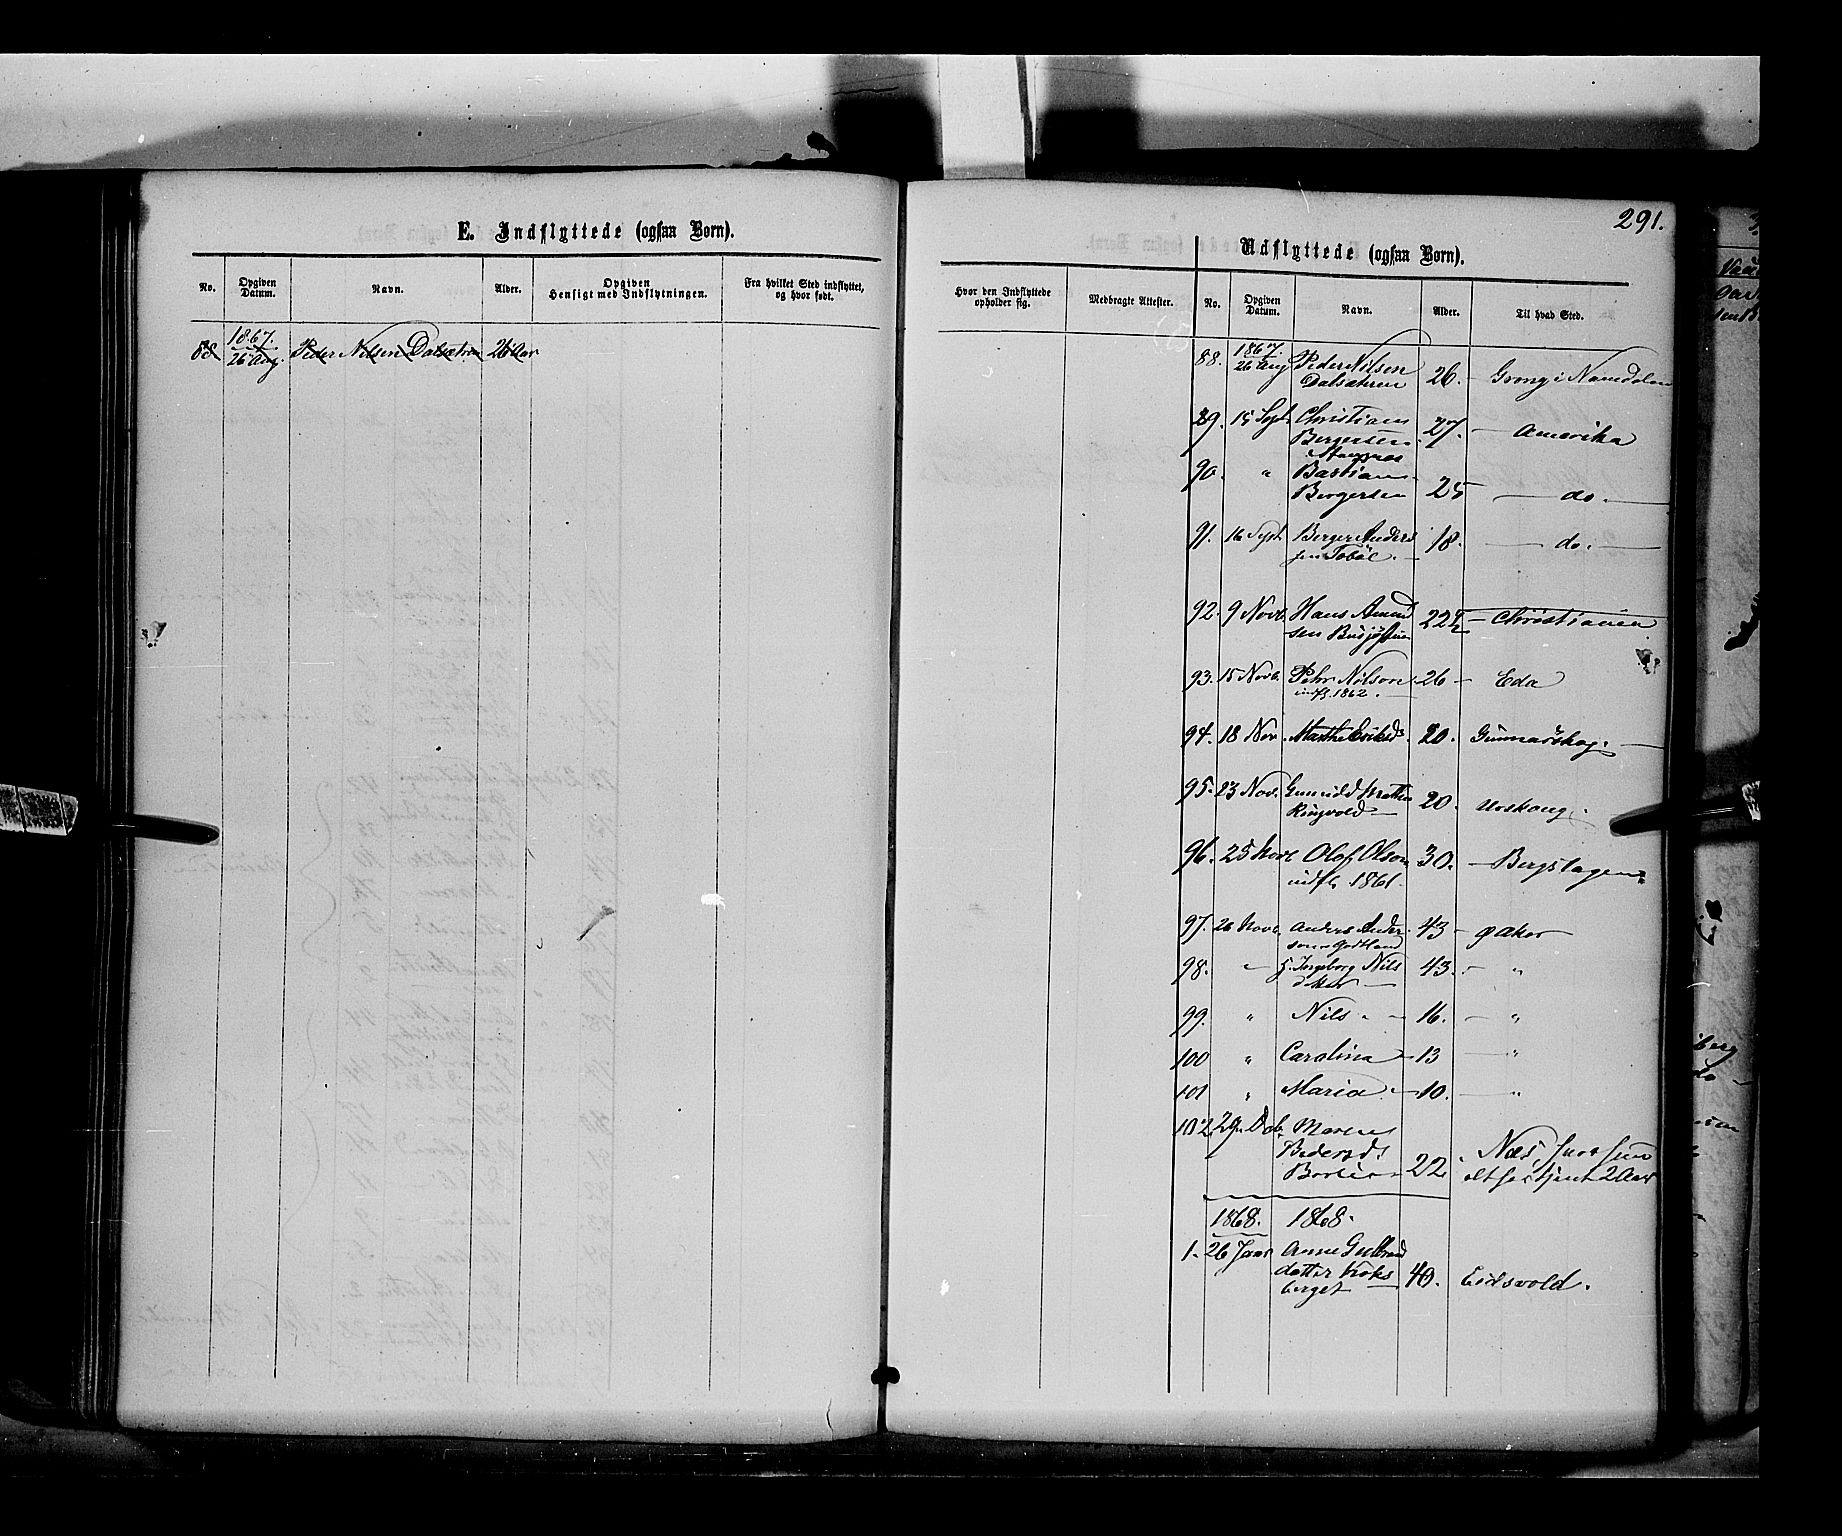 E. Indflyttede (ogsaa Børn).
No. Opgiven Datum. Navn. Alder. Opgiven Hensigt med Indflytningen. Fra hvilket Sted indflyttet, og hvor født.
1867.
88 26 Aug. Peder Nilsen Dalsætren 26 Aar
291.
Udflyttede (ogsaa Børn).
Hvor den Indflyttede opholder sig. Medbragte Attester. No. Opgiven Datum. Navn. Alder. Til hvad Sted.
1867.
88. 26 Aug Peder Nilsen
Dalsætren 26. Grong i Namdalen
89. 15 Sept. Christian
Bergersen 27. Amerika
90. " Bastian
Bergersen 25 do.
91. 16 Sept. Berger Anders
sen Tobøl. 18. do.
92. 9 Novb. Hans Amund
sen 22½ Christiania
93. 15 Novb. Pehr Nilson 26 Eda
indfl. 1862.
94. 18 Nov. Marthe Eriksd. 20. Gunnarskog.
95. 23 Nov.
Ringvold 20. Urskoug.
96. 25 Novb Olof Olson 30. Bergslagen
indfl. 1861.
97. 26 Novb. Anders Ander
son 43
98. " Ingeborg Nils
datter 43. "
99. " Nils 16. "
100 " Carolina 13 "
101 " Maria 10. "
102. 29. Deb. Maren
Pedersd.
22. Næs, hvor hun
alt har tjent 2 Aar
1868. 1868.
1. 26 Janr Anne Gulbrand
datter Kroks
berget 40. Eidsvold.